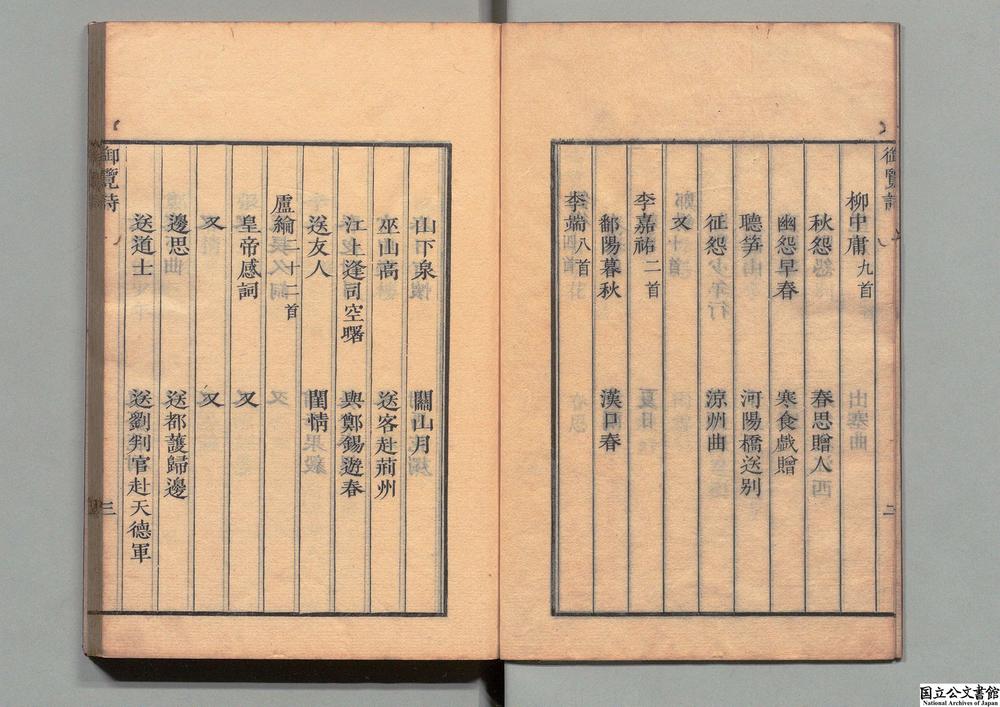 御覽詩
二
柳中庸九首
秋怨 春思贈人
幽怨早春 寒食戲贈
聽笋 河陽橋送别
征怨 涼州曲
又
李嘉祐二首
鄱陽暮秋 漢口春
李端八首
山下泉 關山月
巫山高 送客赴荊州
江上逢司空曙 與鄭錫遊春
送友人 閨情
盧綸二十二首
皇帝感詞 又
又 又
邊思 送都護歸邊
送道士 送劉判官赴天德軍
御覽詩
三
国立公文書館
National Archives of Japan